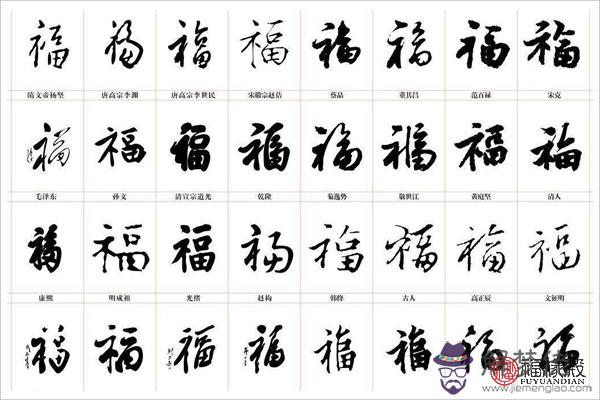 福 福 福 福 福 福 福 福
隋文帝杨坚 唐高宗李渊 唐高宗李世民 宋徽宗赵佶 蔡晶 董其昌 范百禄 宋克
福 福 福 福 福 福 福 福
毛泽东 孙文 清宣宗道光 乾隆 菊逸势 敬世江 黄庭坚 清人
福 福 福 福 福 福 福 福
康熙 明成祖 光绪 赵构 韩绛 古人 高正辰 文征明
福 福 福 福 福 福 福 福
福缘殿
FUYUANDIAN